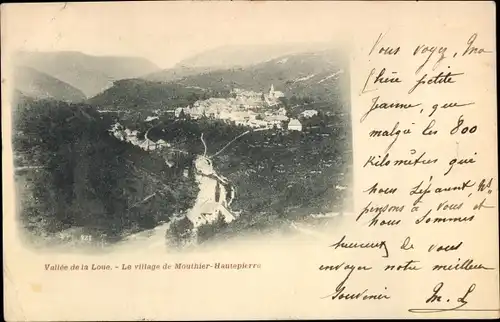 Vous voyez, Ma
chère petite
Jeanne, que
malgré les 800
kilomètres qui
nous séparent, ns
pensons à vous et
nous sommes
heureux de vous
envoyer notre meilleur
Souvenir
M. L
Vallée de la Loue. - Le village de Mouthier-Hautepierre